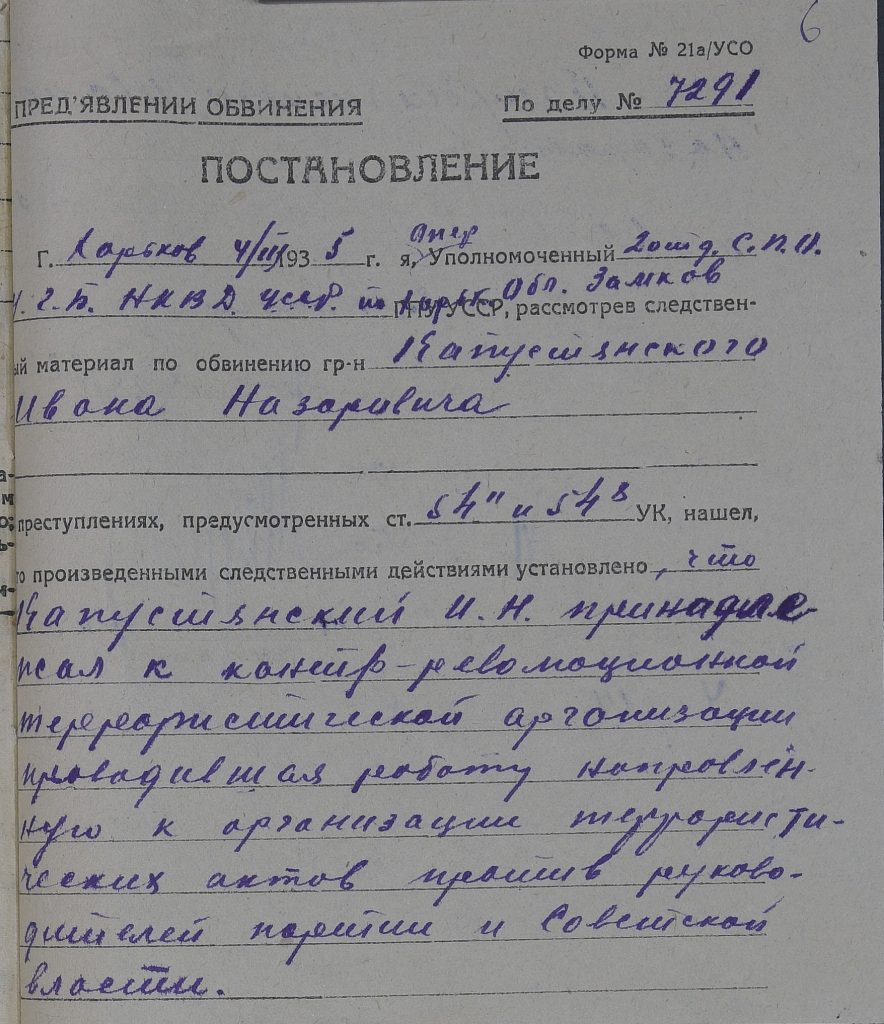 6
Форма № 21а/УСО
ПРЕД'ЯВЛЕНИИ ОБВИНЕНИЯ
По делу № 7291
ПОСТАНОВЛЕНИЕ
Г. Харьков 4/III 1935 г. я, Опер Уполномоченный 2 отд. С.П.О.
У.Г.Б. НКВД. УССР. по Харьк. Обл. Замков
ГПУ УССР, рассмотрев следствен-
ый материал по обвинению гр-н Капустянского
Ивана Назаровича
преступлениях, предусмотренных ст. 54¹¹ и 54⁸ УК, нашел,
то произведенными следственными действиями установлено, что
Капустянский И. Н. принадле-
жал к контр-революционной
террористической организации
проводившая работу направлен-
ную к организации террористи-
ческих актов против руково-
дителей партии и Советской
власти.